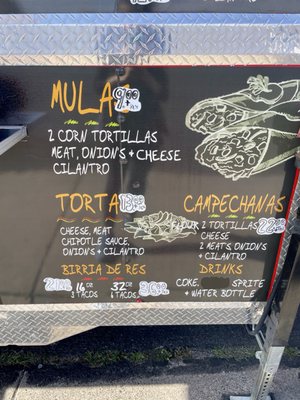 MULA 9.00 + TAX
2 CORN TORTILLAS
MEAT, ONION'S + CHEESE
CILANTRO
TORTA
CHEESE, MEAT
CHIPOTLE SAUCE,
ONION'S + CILANTRO
CAMPECHANAS
FLOUR 2 TORTILLAS
CHEESE
2 MEATS, ONION'S
+ CILANTRO
BIRRIA DE RES
16oz 32oz
3 TACOS 6 TACOS
DRINKS
COKE, SPRITE
+ WATER BOTTLE